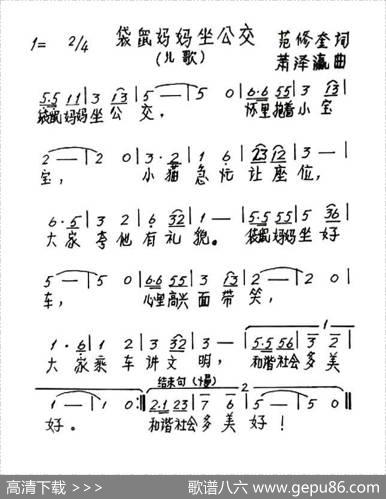 袋鼠妈妈坐公交
1= 2/4
(儿歌)
范修奎词
萧泽瀛曲
5·5 11 | 3 13 | 5 — | 5 0 | 6·6 55 | 3 13 |
袋鼠妈妈坐公交， 怀里抱着小宝
2 — | 2 0 | 3·2 | 1 6 | 23 12 | 3 — |
宝， 小猫急忙让座位，
6·5 | 3 2 | 6 32 | 1 — | 5·5 55 | 5 36 |
大家夸他有礼貌。 袋鼠妈妈坐好
5 — | 5 0 | 6·6 55 | 3 13 | 2 — | 2 0 |
车， 心里高兴面带笑，
1·6 | 1 2 | 3 32 | 3 — | 5·5 56 | 3 2 |
大家乘车讲文明， 和谐社会多美
结束句(慢) 2
1 — | 1 0 :‖ 2·1 23 | 7 6 | 5 — | 5 0 ‖
好。 和谐社会多美好！
高清下载 >>>
歌谱八六 www.gepu86.com